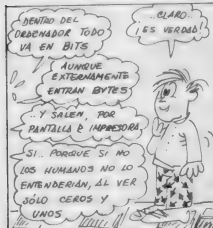 DENTRO DEL
ORDENADOR TODO
VA EN BITS
..CLARO..
¡ES VERDAD!
AUNQUE
EXTERNAMENTE
ENTRAN BYTES
..Y SALEN, POR
PANTALLA E IMPRESORA
SI.. PORQUE SI NO
LOS HUMANOS NO LO
ENTENDERIAN, AL VER
SÓLO CEROS Y
UNOS